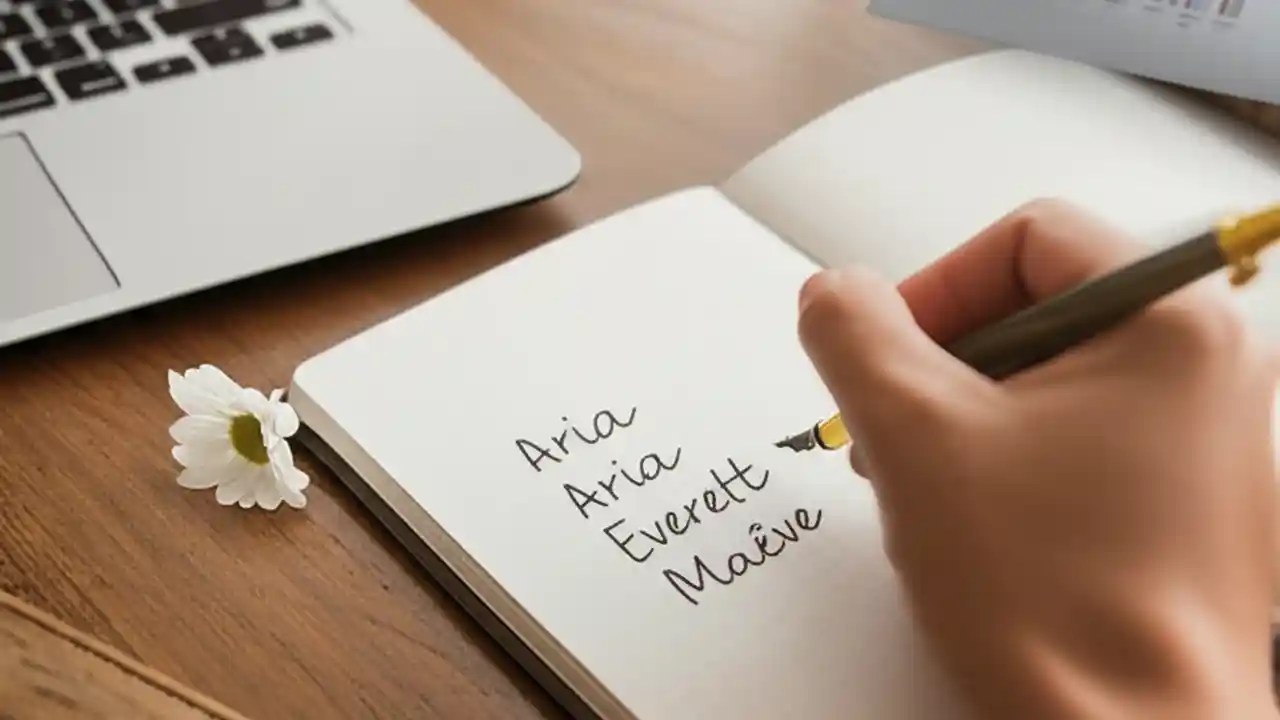 Aria
Aria
Everett
Maëve